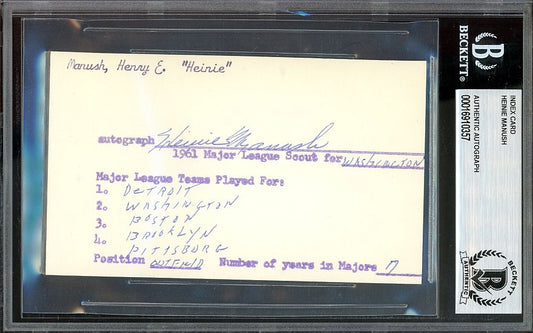 Manush, Henry E. "Heinie"
autograph Heinie Manush
1961 Major League Scout for WASHINGTON
Major League Teams Played For:
1. DETROIT
2. WASHINGTON
3. BOSTON
4. BROOKLYN
PITTSBURG
Position OUTFIELD Number of years in Majors 17
BECKETT®
INDEX CARD
HEINIE MANUSH
AUTHENTIC AUTOGRAPH
00016910357
BECKETT
AUTHENTIC